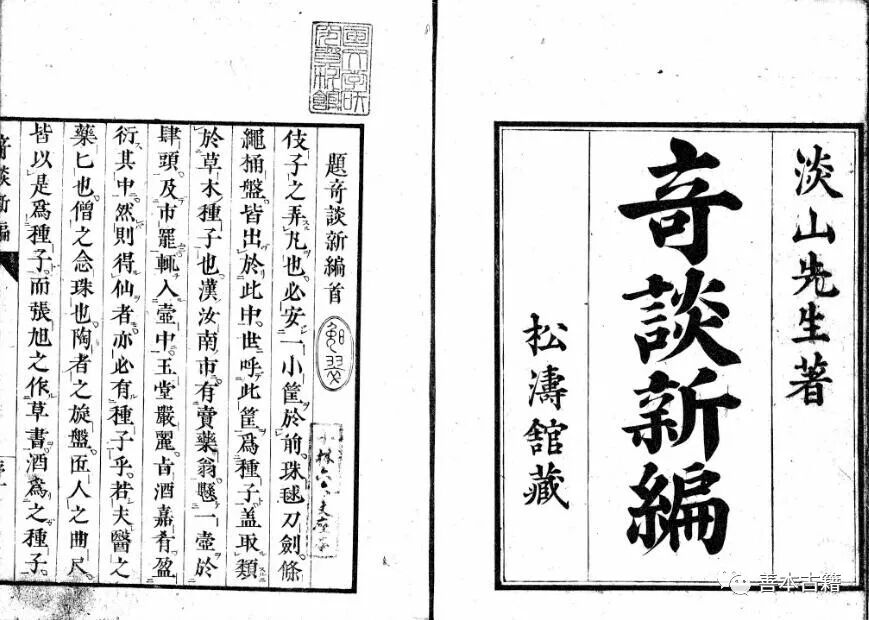 淡山先生著
奇談新編
松濤舘藏
題奇談新編首
伎子之弄凡也必安一小筐於前珠毬刀劍條
繩桶盤皆出於此中世呼此筐爲種子盖取類
於草木種子也漢汝南市有賣藥翁懸一壺於
肆頭及市罷輒入壺中玉堂嚴麗旨酒嘉肴盈
衍其中然則得仙者亦必有種子乎若夫醫之
藥匕也僧之念珠也陶者之旋盤匠人之曲尺
皆以是爲種子而張旭之作草書酒爲之種子
奇談新編
善本古籍